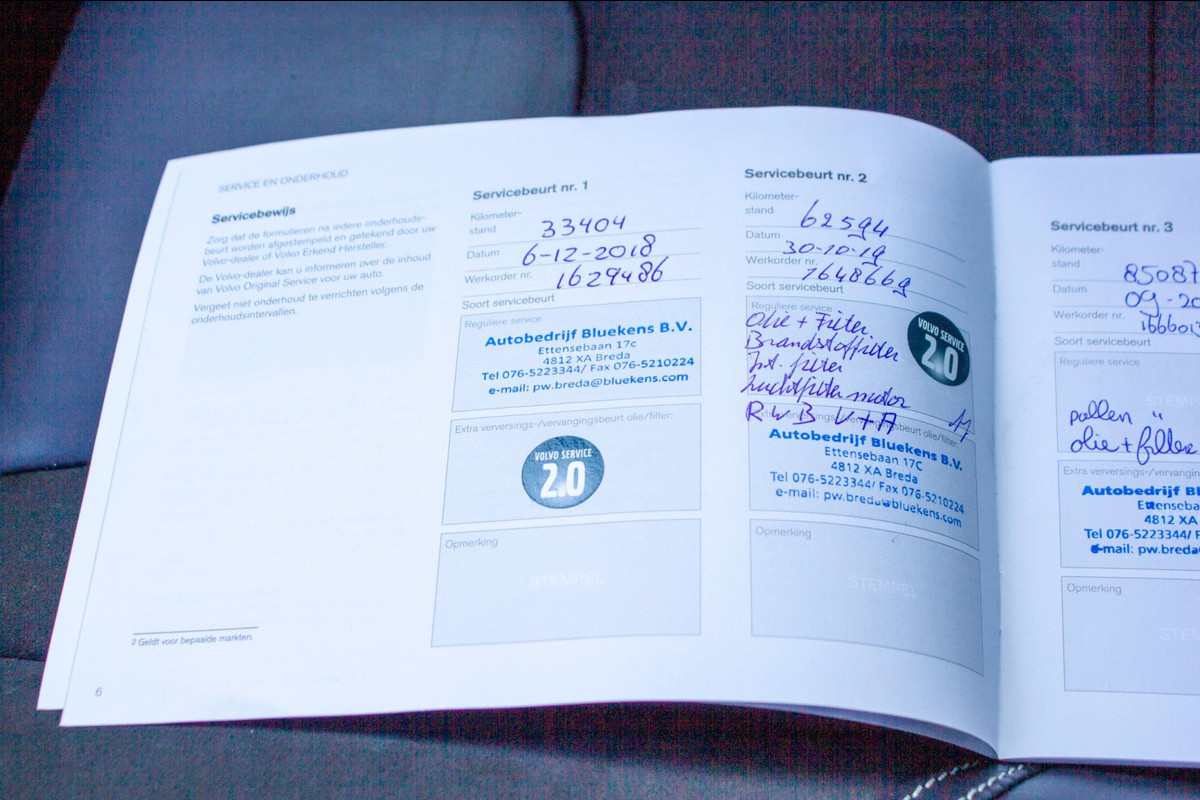 SERVICE EN ONDERHOUD
Servicebewijs
Zorg dat de formulieren na iedere onderhouds-
beurt worden afgestempeld en getekend door uw
Volvo-dealer of Volvo Erkend Hersteller.
De Volvo-dealer kan u informeren over de inhoud
van Volvo Original Service voor uw auto.
Vergeet niet onderhoud te verrichten volgens de
onderhoudsintervallen.
2 Geldt voor bepaalde markten.
6
Servicebeurt nr. 1
Kilometer-
stand 33404
Datum 6-12-2018
Werkorder nr. 1629486
Soort servicebeurt
Reguliere service
Autobedrijf Bluekens B.V.
Ettensebaan 17c
4812 XA Breda
Tel 076-5223344/ Fax 076-5210224
e-mail: pw.breda@bluekens.com
Extra verversings-/vervangingsbeurt olie/filter:
VOLVO SERVICE
2.0
Opmerking
STEMPEL
Servicebeurt nr. 2
Kilometer-
stand 62594
Datum 30-10-19
Werkorder nr. 1648669
Soort servicebeurt
Reguliere service
Olie + Filter
Brandstoffilter
Int. filter
Luchtfilter motor
RWB V+A
VOLVO SERVICE
2.0
Extra verversings-/vervangingsbeurt olie/filter:
Autobedrijf Bluekens B.V.
Ettensebaan 17C
4812 XA Breda
Tel 076-5223344/ Fax 076-5210224
e-mail: pw.breda@bluekens.com
Opmerking
STEMPEL
Servicebeurt nr. 3
Kilometer-
stand 85087
Datum 09-20
Werkorder nr. 166601
Soort servicebeurt
Reguliere service
STEMP
pollen "
olie + filter
Extra verversings-/vervangin
Autobedrijf Bl
Ettenseba
4812 XA
Tel 076-5223344/ F
e-mail: pw.breda
Opmerking
STE